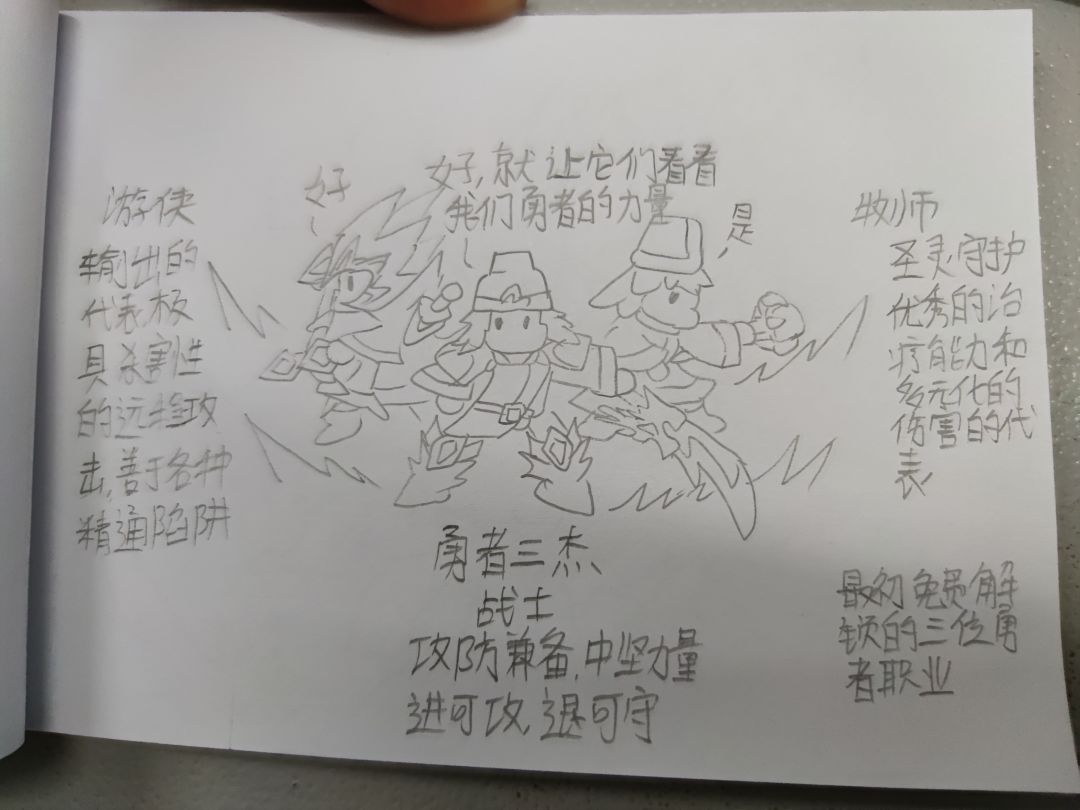 好
好,就让它们看看
我们勇者的力量
是
游侠
输出的
代表,极
具杀害性
的远择攻
击,善于各种
精通陷阱
牧师
圣灵守护
优秀的治
疗能力和
多元化的
伤害的代
表,
勇者三杰
战士
攻防兼备,中坚力量
进可攻,退可守
最初免费解
锁的三位勇
者职业